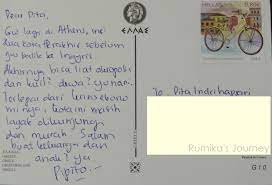 Dear Pita,
Gw lagi di Athens, ini
dua kota terakhir sebelum
gw balik ke Inggris
Akhirnya bisa liat akropolis
dan kuil² dewa² Yunani.
Terlepas dari krisis ekonomi
nya, kota ini masih
layak dikunjungi
dan murah. Salam
buat keluarga dan
anak² ya
Pipito..
ΕΛΛΑΣ
HELLAS
0,80€
To Pita Indrahapsari
Rumika's Journey
G10